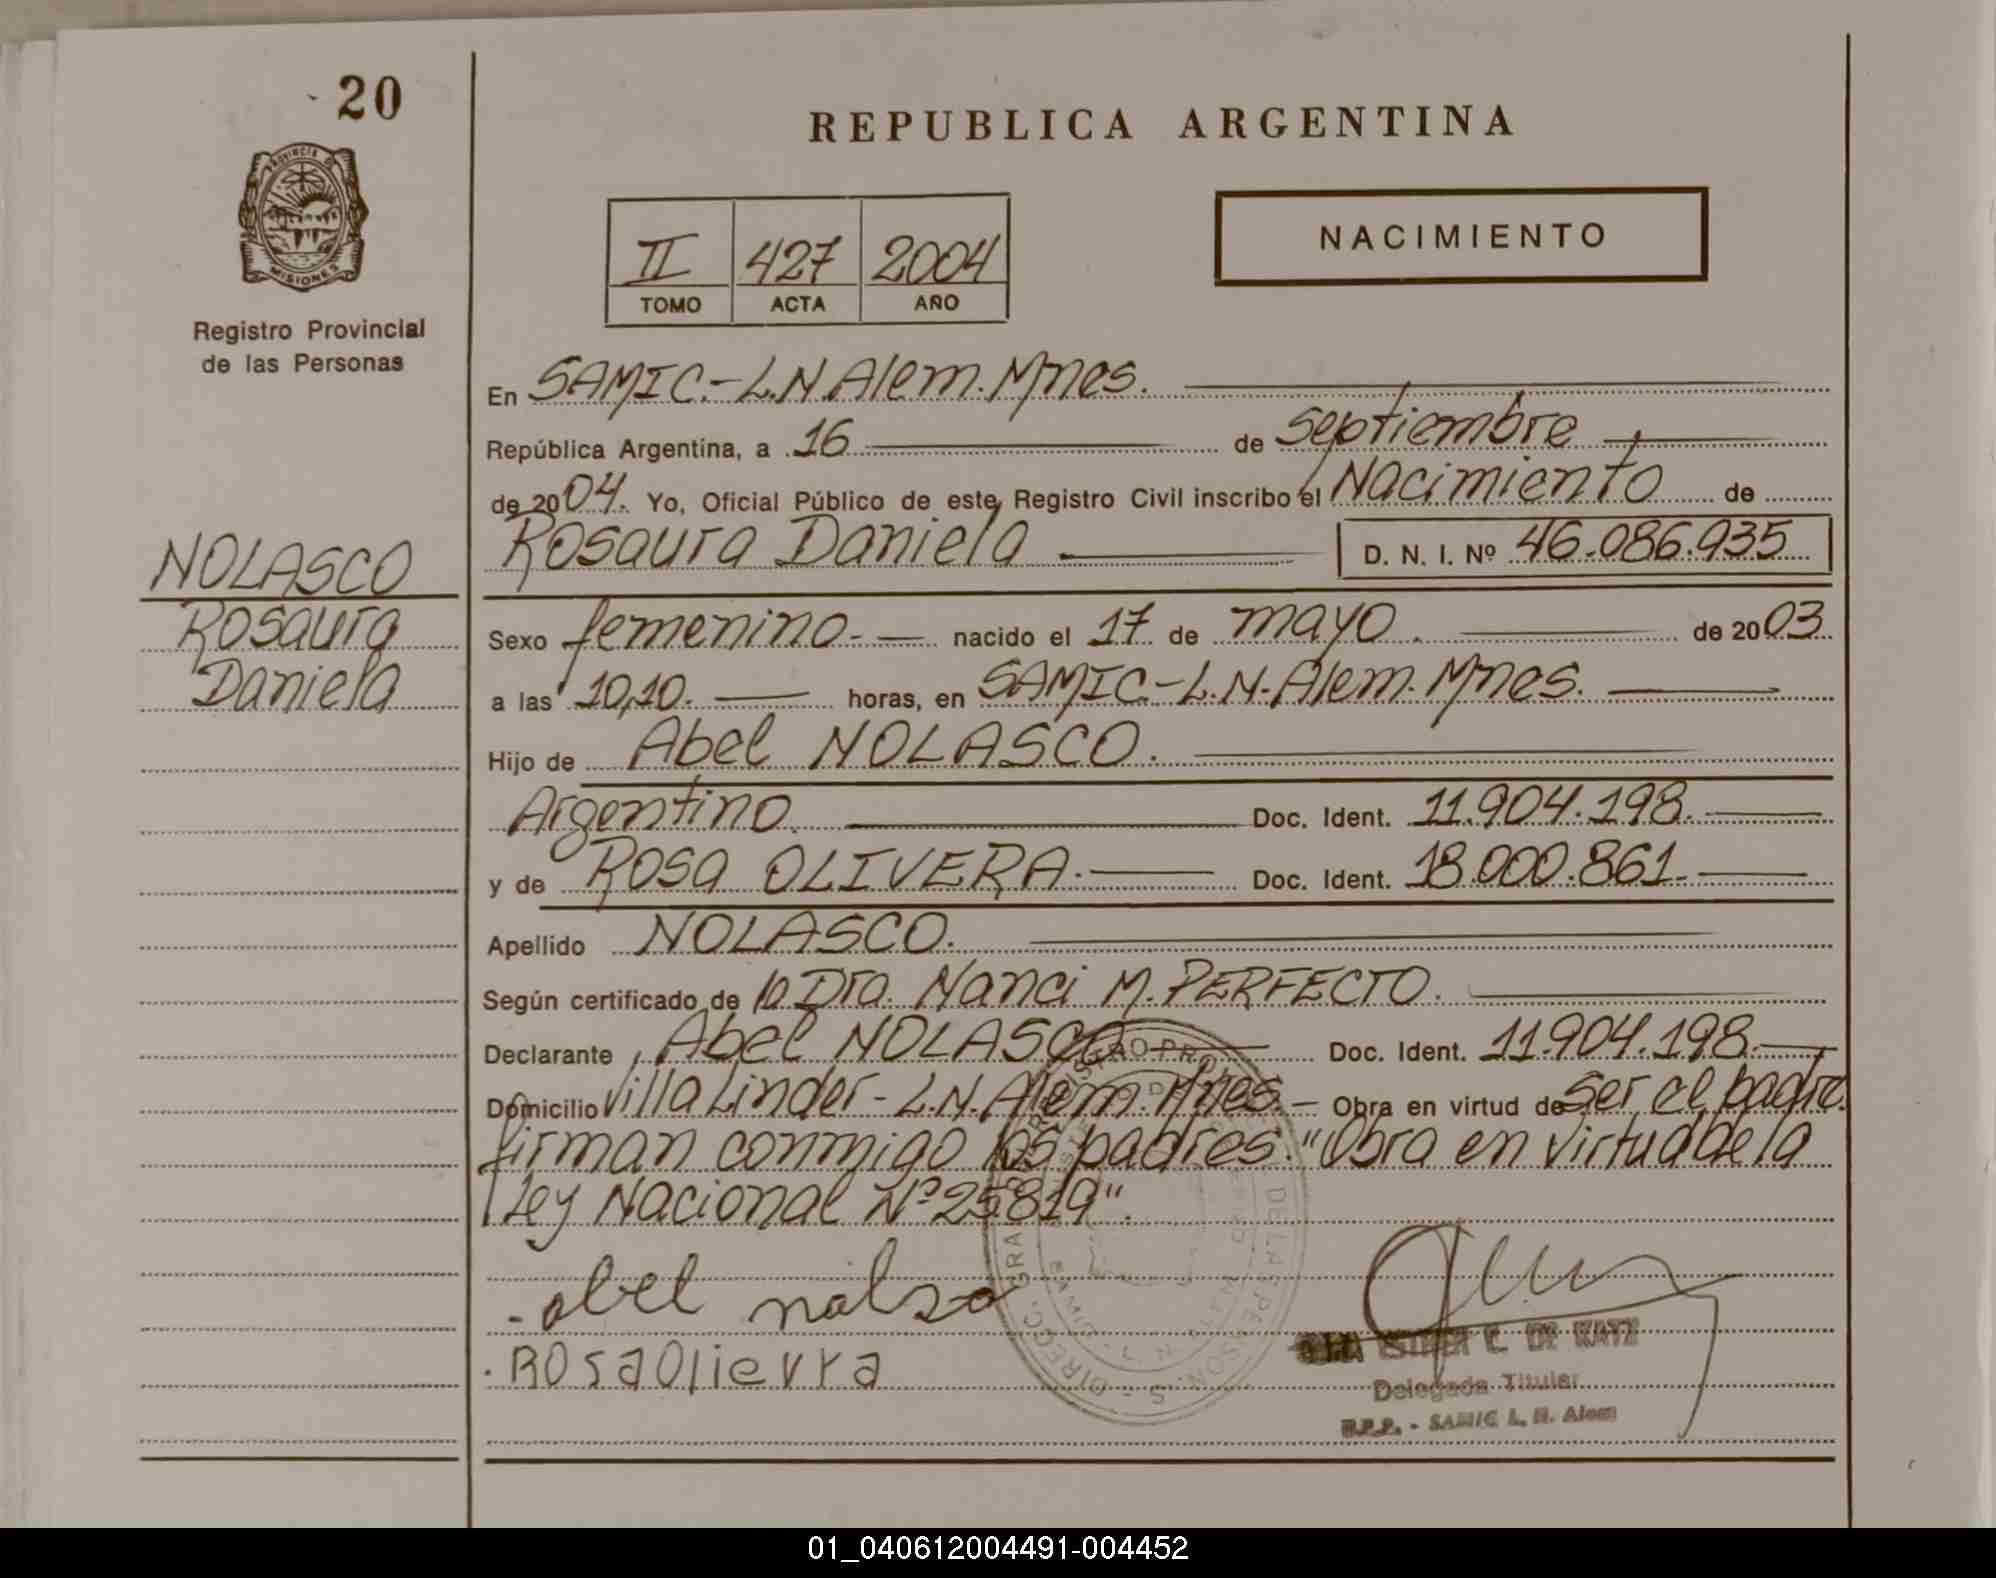 20
PROVINCIA DE
MISIONES
Registro Provincial
de las Personas
NOLASCO
Rosaura
Daniela
REPUBLICA ARGENTINA
II 427 2004
TOMO ACTA AÑO
NACIMIENTO
En SAMIC.-L.N.Alem.Mnes.
República Argentina, a 16 de septiembre
de 2004. Yo, Oficial Público de este Registro Civil inscribo el Nacimiento de
Rosaura Daniela D. N. I. Nº 46.086.935
Sexo femenino.- nacido el 17 de mayo. de 2003
a las 10,10. horas, en SAMIC.-L.N.-Alem.Mnes.
Hijo de Abel NOLASCO.
Argentino. Doc. Ident. 11.904.198.
y de Rosa OLIVERA. Doc. Ident. 18.000.861.
Apellido NOLASCO.
Según certificado de la Dra. Nanci M. PERFECTO.
Declarante Abel NOLASCO Doc. Ident. 11.904.198.
Domicilio Villa Linder - L.N.Alem.Mnes.- Obra en virtud de ser el padre.
firman conmigo los padres. "Obra en virtud de la
Ley Nacional Nº 25819".
abel nolso
Rosa Olievra
C. DE KATZ
Delegada Titular
R.P.P. - SAMIC L. N. Alem
01_040612004491-004452